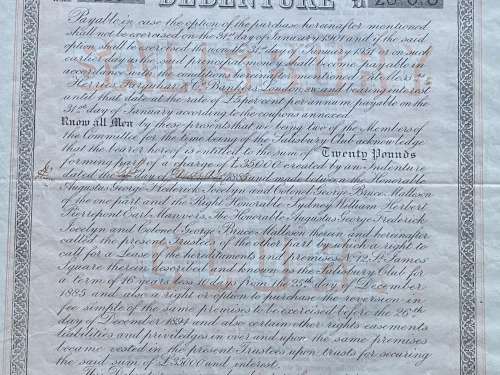 DEBENTURE
Payable in case the option of the purchase hereinafter mentioned
shall not be exercised on the 31st day of January 1901 and if the said
option shall be exercised then on the 31st day of January 1951 or on such
earlier day as the said principal money shall become payable in
accordance with the conditions hereinafter mentioned at Messrs
Herries Farquhar & Co Bankers London S.W. and bearing interest
until that date at the rate of 5 per cent per annum payable on the
31st day of January according to the coupons annexed.
Know all Men by these presents that we being two of the Members of
the Committee for the time being of the Salisbury Club acknowledge
that the bearer hereof is entitled to the sum of Twenty Pounds
forming part of a charge of £3500 created by an Indenture
dated the day of 1885 and made between the Honorable
Augustus George Frederick Jocelyn and Colonel George Bruce Malleson
of the one part and the Right Honorable Sydney William Herbert
Pierrepont Earl Manvers. The Honorable Augustus George Frederick
Jocelyn and Colonel George Bruce Malleson therein and hereinafter
called the present Trustees of the other part by which a right to
call for a Lease of the hereditaments and premises No 12 St James'
Square therein described and known as the Salisbury Club for
a term of 16 years less 10 days from the 25th day of December
1885 and also a right or option to purchase the reversion in
fee simple of the same premises to be exercised before the 26th
day of December 1894 and also certain other rights easements
liabilities and priviledges in over and upon the same premises
became vested in the present Trustees upon trusts for securing
the said sum of £3500 and interest.